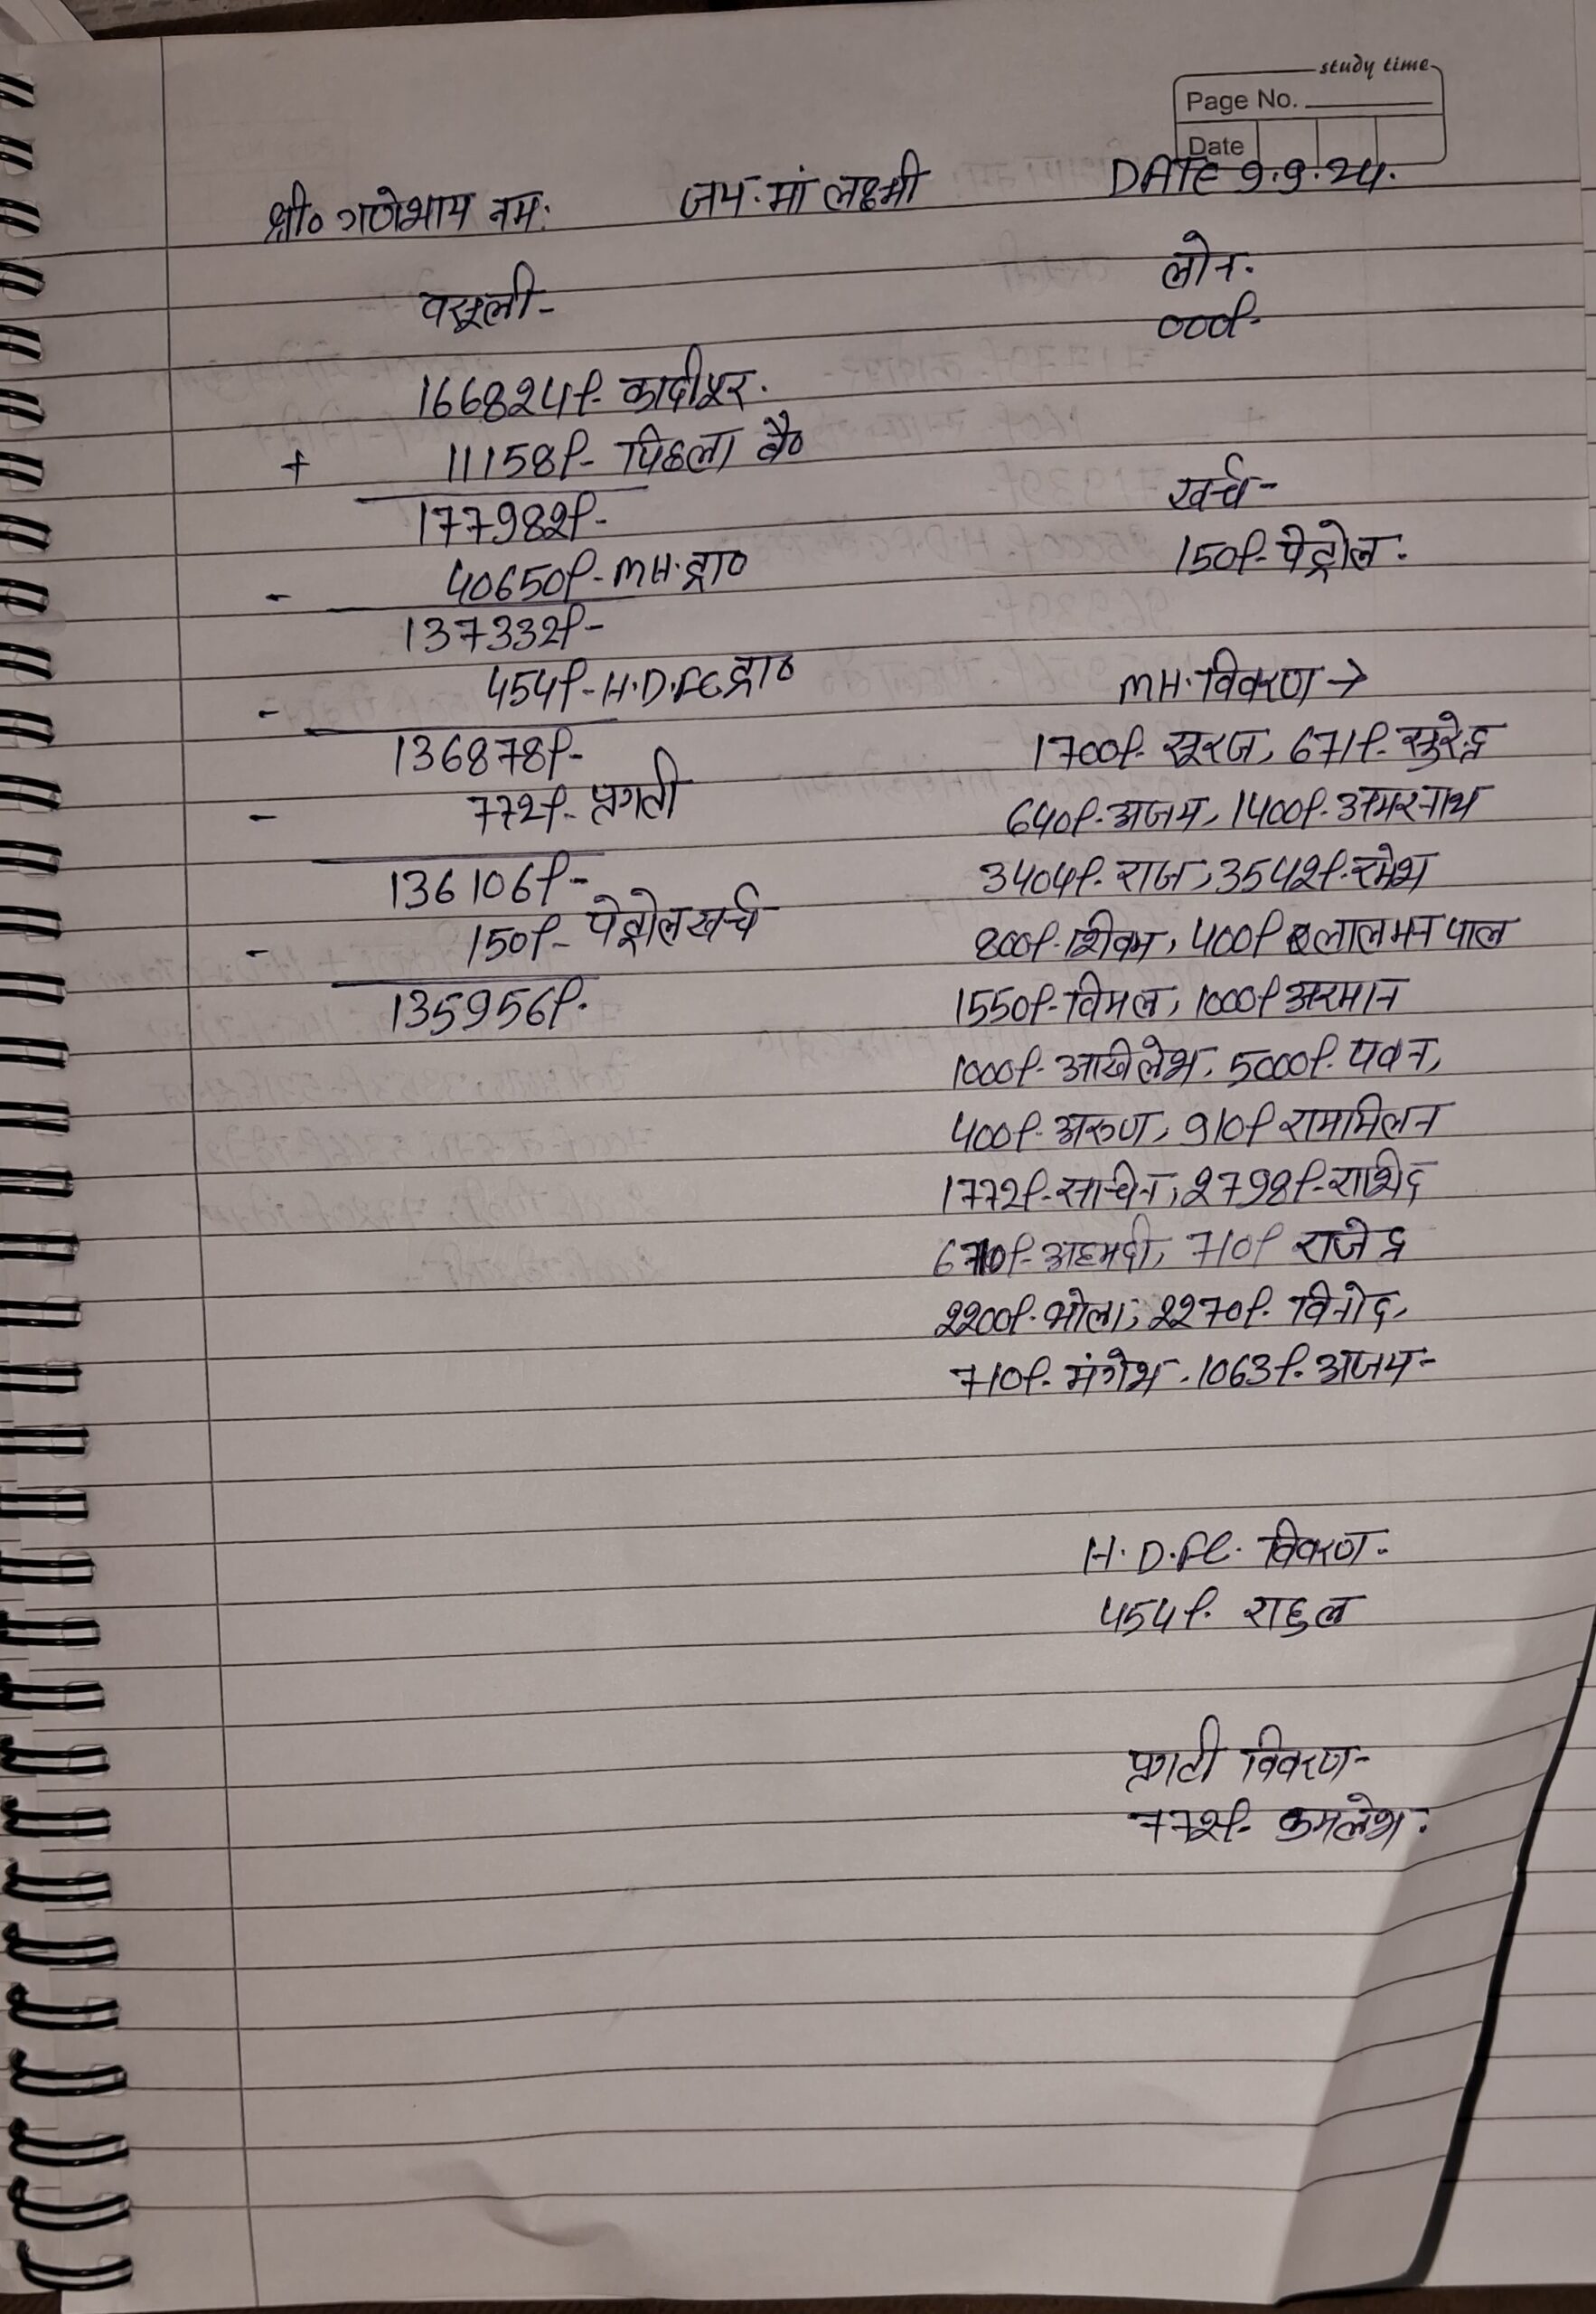 study time
Page No.
Date
श्री० गणेशाय नम: जय.मां लक्ष्मी DATE 9.9.24.
वसूली-
लोन.
000/-
166824/- कादीपुर.
+ 11158/- पिछला बै०
177982/-
- 40650/- MH.ट्रा०
137332/-
- 454/- H.D.FC ट्रा०
136878/-
- 772/- प्रगती
136106/-
- 150/- पेट्रोल खर्च
135956/-
खर्च-
150/- पेट्रोल.
MH.विवरण →
1700/- सूरज, 671/- सुरेन्द्र
640/- अजय, 1400/- अमरनाथ
3404/- राज, 3542/- रमेश
800/- शिवम, 400/- लालमन पाल
1550/- विमल, 1000/- अरमान
1000/- अखिलेश, 5000/- पवन,
400/- अरुण, 910/- राममिलन
1772/- सचिन, 2798/- राशिद
6710/- अहमदी, 710/- राजेन्द्र
2200/- भोला, 2270/- विनोद,
710/- मंगेश, 1063/- अजय-
H.D.FC. विवरण.
454/- राहुल
प्रगती विवरण-
772/- कमलेश.